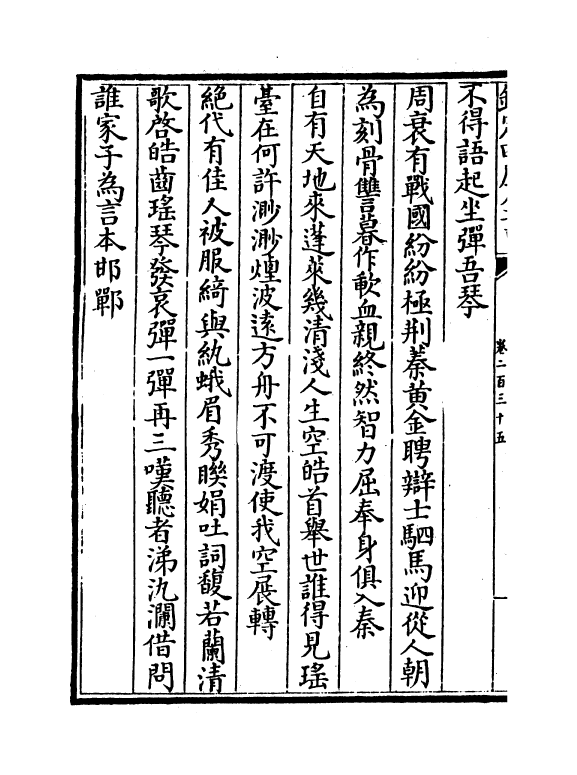 卷二百三十五
不得語起坐彈吾琴
周衰有戰國紛紛極荆蓁黄金聘辯士駟馬迎從人朝
為刻骨讐暮作歃血親終然智力屈奉身俱入秦
自有天地來蓬萊幾清淺人生空皓首舉世誰得見瑶
臺在何許渺渺煙波遠方舟不可渡使我空展轉
絶代有佳人被服綺與紈蛾眉秀聯娟吐詞馥若蘭清
歌啓皓齒瑶琴發哀彈一彈再三嘆聽者涕汍瀾借問
誰家子為言本邯鄲